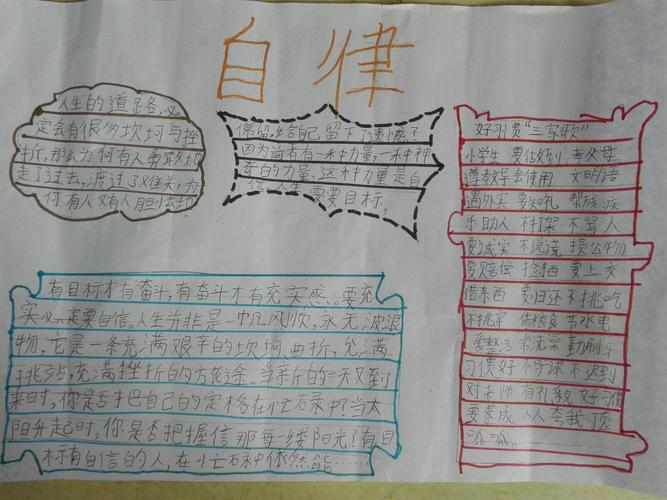 自律
人生的道路,必
定会有很多坎坷与挫
折,那么为何有人勇敢地
走了过去,渡过了难关,为
何有人又有人胆怯地
停留,给自己留下了遗憾
因为前者有一种力量,一种神
奇的力量,这种力量是自
信,人生需要目标,
有目标才有奋斗,有奋斗才有充实感。要充
实必需要自信。人生并非是一帆风顺,永无波浪
物,它是一条充满艰辛的坎坷、曲折,充满
挑战,充满挫折的方 途。当新的一天又到
来时,你是否把自己的定格在忙碌中?当太
阳升起时,你是否把握信那每一缕阳光?有目
标有自信的人,在忙碌中依然能……
好习贯“三家歌”
小学生 要做到 孝父母
遵教导 会使用 文明语
遇外宾 要知礼 帮残疾
乐助人 不打架 不骂人
要诚实 不说谎 损公物
要赔偿 捡拾 要上交
借东西 要归还 不挑吃
不挑穿 借粮食 节水电
要整洁 常洗澡 勤刷牙
习惯好 不旷课 不迟到
对老师 有礼貌 好习惯
要养成 人人夸我 顶
呱呱。